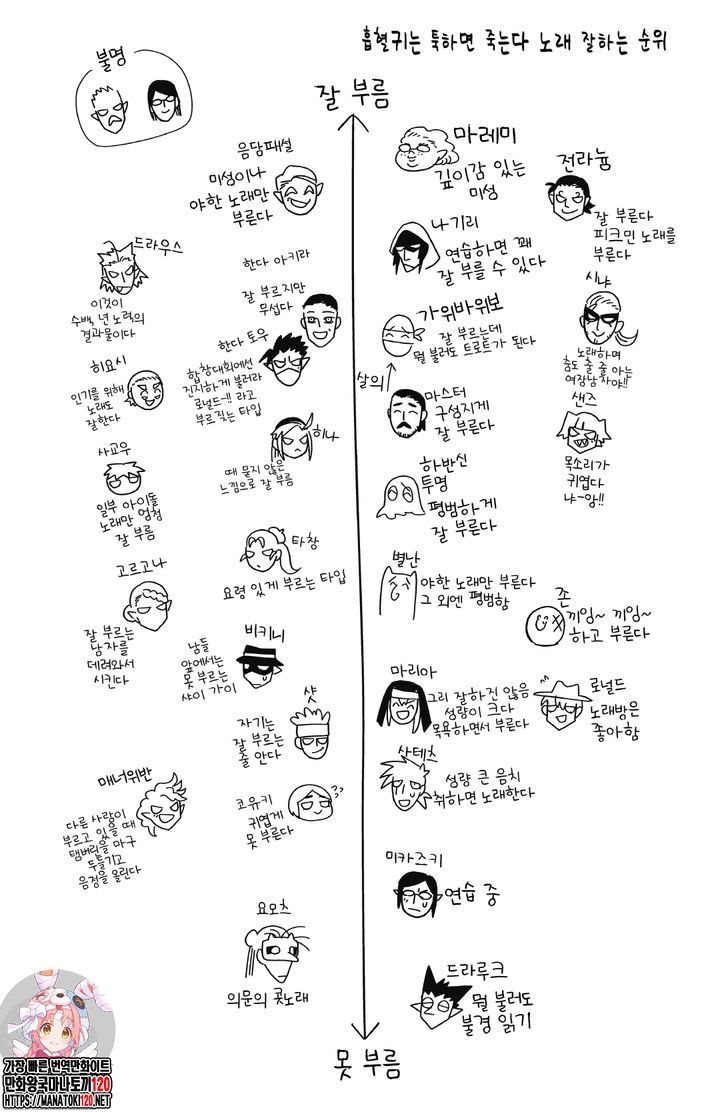 흡혈귀는 툭하면 죽는다 노래 잘하는 순위
불명
잘 부름
음담패설
미성이나
야한 노래만
부른다
마레미
깊이감 있는
미성
전라늄
잘 부른다
피크민 노래를
부른다
나기리
연습하면 꽤
잘 부를 수 있다
드라우스
이것이
수백, 년 노력의
결과물이다
한다 아키라
잘 부르지만
무섭다
시냐
노래하며
춤도 출 줄 아는
여장남자야!!
가위바위보
잘 부르는데
뭘 불러도 트로트가 된다
살의
한다 토우
합창대회에선
진지하게 불러라
로널드-!! 라고
부르짖는 타입
히요시
인기를 위해
노래도
잘한다
마스터
구성지게
잘 부른다
샌즈
목소리가
귀엽다
냐~앙!!
히나
때 묻지 않은
느낌으로 잘 부름
사교우
일부 아이돌
노래만 엄청
잘 부름
하반신
투명
평범하게
잘 부른다
타창
요령 있게 부르는 타입
별난
야한 노래만 부른다
그 외엔 평범함
고르고나
잘 부르는
남자를
데려와서
시킨다
존
끼잉~ 끼잉~
하고 부른다
비키니
남들
앞에서는
못 부르는
샤이 가이
마리아
그리 잘하진 않음
성량이 크다
목욕하면서 부른다
로널드
노래방은
좋아함
샷
자기는
잘 부르는
줄 안다
사테츠
성량 큰 음치
취하면 노래한다
매너위반
다른 사람이
부르고 있을 때
탬버린을 마구
두들기고
음정을 올린다
코유키
귀엽게
못 부른다
??
미카즈키
연습 중
요모츠
의문의 콧노래
드라루크
뭘 불러도
불경 읽기
못 부름
가장 빠른 번역만화이트
만화왕국마나토끼120
HTTPS://MANATOKI120.NET